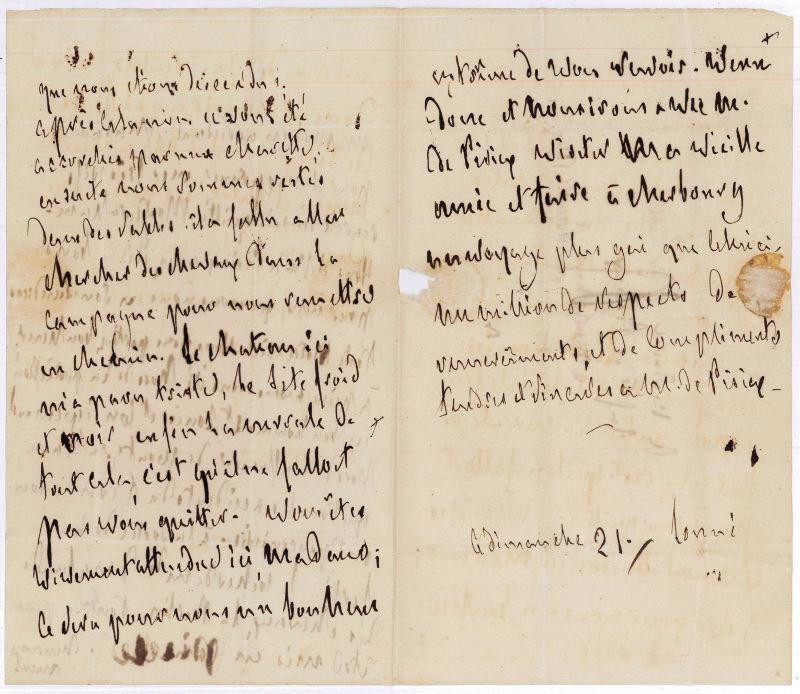 que nous étions descendus.
après cela nous avons été
accrochés par une charette,
ensuite nous sommes restés
dans des sables. il a fallu aller
chercher des chevaux dans la
campagne pour nous remettre
en chemin. le chateau ici
m'a paru triste, le site froid
et noir enfin la morale de
tout cela, c'est qu'il ne falloit
pas vous quitter. vous êtes
vivement attendue ici, madame;
ce sera pour nous un bonheur
extrême de vous revoir. venez
donc et nourrisons avec m.
de visiter ma vieille
amie et faire à cherbourg
un voyage plus gai que celui ci.
un million de respects de
remerciments, et de compliments
tendres et sincères a mr de
ce dimanche 21.